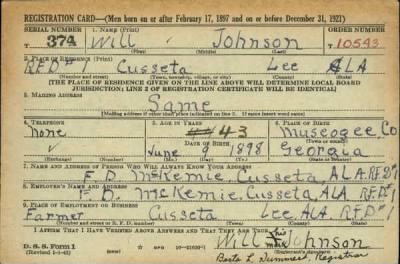 REGISTRATION CARD—(Men born on or after February 17, 1897 and on or before December 31, 1921)
SERIAL NUMBER 1. NAME (Print) ORDER NUMBER
T 374 Will Johnson T 10543
(First) (Middle) (Last)
2. PLACE OF RESIDENCE (Print)
R.F.D#1 Cusseta Lee ALA
(Number and street) (Town, township, village, or city) (County) (State)
[THE PLACE OF RESIDENCE GIVEN ON THE LINE ABOVE WILL DETERMINE LOCAL BOARD
JURISDICTION; LINE 2 OF REGISTRATION CERTIFICATE WILL BE IDENTICAL]
3. MAILING ADDRESS
Same
[Mailing address if other than place indicated on line 2. If same insert word same]
4. TELEPHONE 5. AGE IN YEARS 6. PLACE OF BIRTH
None 43 Museogee Co
DATE OF BIRTH (Town or county)
June 9 1898 Georgia
(Exchange) (Number) (Mo.) (Day) (Yr.) (State or country)
7. NAME AND ADDRESS OF PERSON WHO WILL ALWAYS KNOW YOUR ADDRESS
F. D. McKemie, Cusseta, ALA. RFD#1
8. EMPLOYER'S NAME AND ADDRESS
F. D. McKemie, Cusseta, ALA. R.F.D#1
9. PLACE OF EMPLOYMENT OR BUSINESS
Farmer Cusseta Lee, ALA. R.F.D#1
(Number and street or R. F. D. number) (Town) (County) (State)
I AFFIRM THAT I HAVE VERIFIED ABOVE ANSWERS AND THAT THEY ARE TRUE.
Will his mark Johnson
D. S. S. Form 1
(Revised 1-1-42) (over)
Registrar